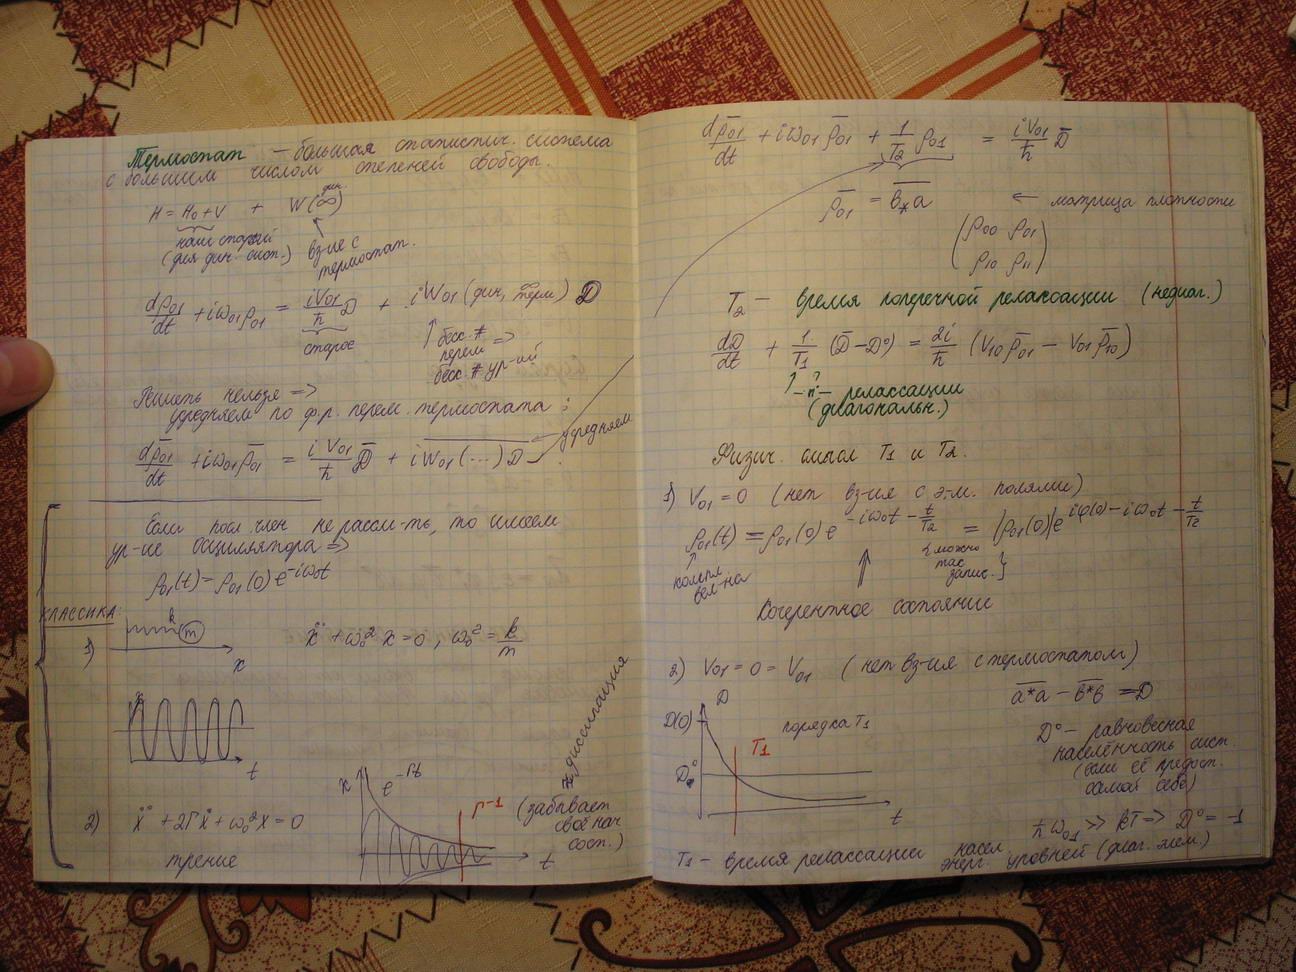 Термостат — большая статистич. система
с большим числом степеней свободы.
H = H₀+V + W(∞) дин.
наш старый
(для дин. сист.)
вз-ие с
термостат.
dρ₀₁/dt + iω₀₁ρ₀₁ = iV₀₁/ħ D + iW₀₁(дин, терм) D
старое
бесс. #
перем =>
бесс. # ур-ий
Решить нельзя =>
усредняем по ф.р. перем. термостата:
усредняем
dρ̄₀₁/dt + iω₀₁ρ̄₀₁ = iV₀₁/ħ D̄ + iW₀₁(...)D
Если посл член не рассм-ть, то имеем
ур-ие осциллятора =>
ρ₀₁(t) = ρ₀₁(0) e^{-iω₀t}
КЛАССИКА:
1)
k
m
x
ẍ + ω₀² x = 0, ω₀² = k/m
x
t
2) ẍ + 2Γẋ + ω₀²x = 0
трение
x
e^{-Γt}
Γ⁻¹
t
(забывает
своё нач
сост.)
диссипация
dρ̄₀₁/dt + iω₀₁ρ̄₀₁ + 1/T₂ ρ₀₁ = iV₀₁/ħ D̄
ρ̄₀₁ = b*a ← матрица плотности
(ρ₀₀ ρ₀₁
ρ₁₀ ρ₁₁)
T₂ — время поперечной релаксации (недиаг.)
dD̄/dt + 1/T₁ (D̄ − D⁰) = 2i/ħ (V₁₀ρ̄₀₁ − V₀₁ρ̄₁₀)
—"— релассации
(диагональн.)
Физич. смысл T₁ и T₂.
1) V₀₁ = 0 (нет вз-ия с э.-м. полями)
ρ₀₁(t) = ρ₀₁(0) e^{-iω₀t − t/T₂} = |ρ₀₁(0)| e^{iφ(0) − iω₀t − t/T₂}
компл
вел-на
{можно
так
запис.}
Когерентное состояние
2) V₀₁ = 0 = V₀₁ (нет вз-ия с термостатом)
a*a − b*b = D
D
D(0)
порядка T₁
T₁
D⁰
t
D⁰ — равновесная
населённость сист.
(если её предост.
самой себе)
ħω₀₁ >> kT => D⁰ = -1
T₁ — время релассации насел.
энерг. уровней (диаг. элем.)